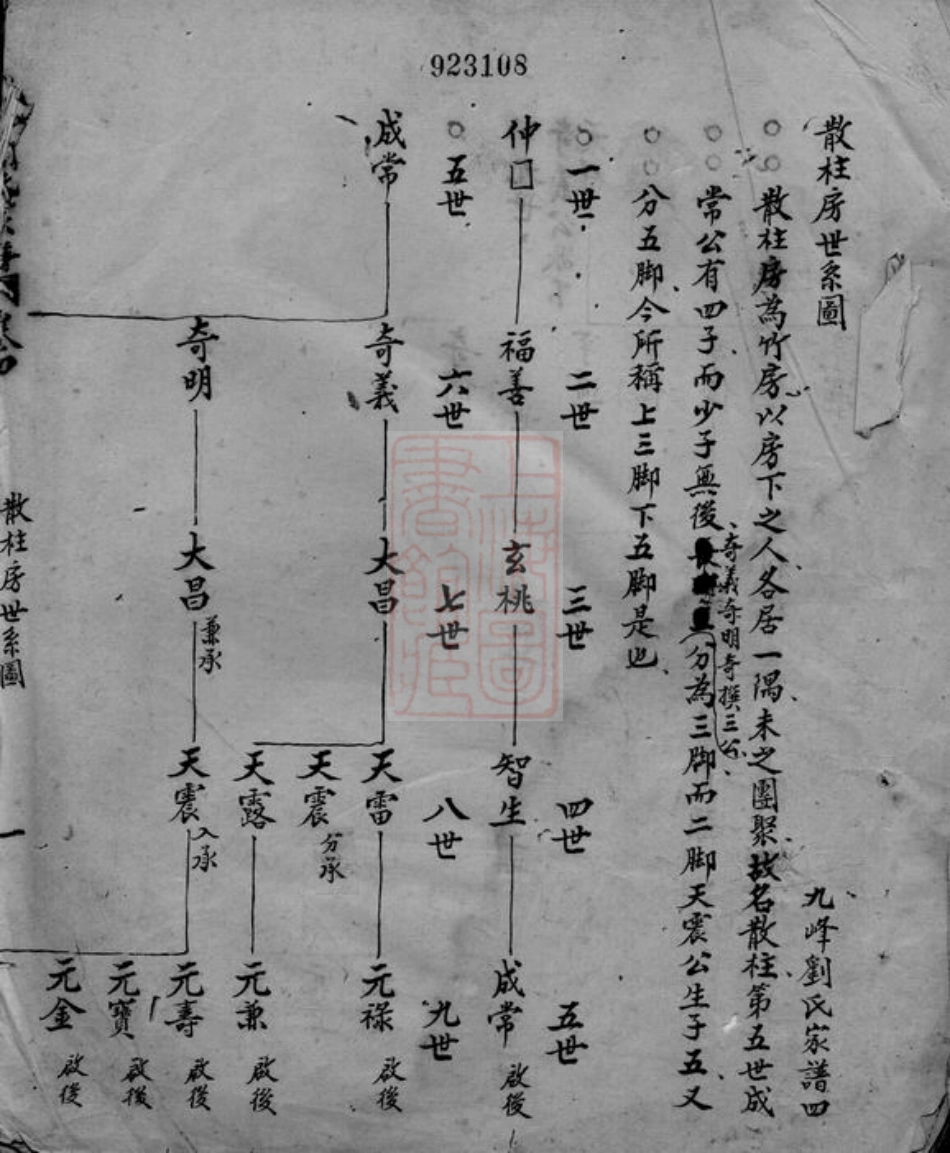 923108
散柱房世系圖
九峰劉氏家譜四
散柱房為竹房以房下之人各居一隅未之團聚故名散柱第五世成
常公有四子而少子無後奇義奇明奇撰三公分為三脚而二脚天震公生子五又
分五脚今所稱上三脚下五脚是也
一世 二世 三世 四世 五世
仲□ 福善 玄桃 智生 成常 啟後
五世 六世 七世 八世 九世
成常 奇義 大昌 天雷 元祿 啟後
天震 分承
天露 元兼 啟後
奇明 大昌 兼承 天震 入承 元壽 啟後
元寶 啟後
元金 啟後
散柱房世系圖
一
上海圖書館藏